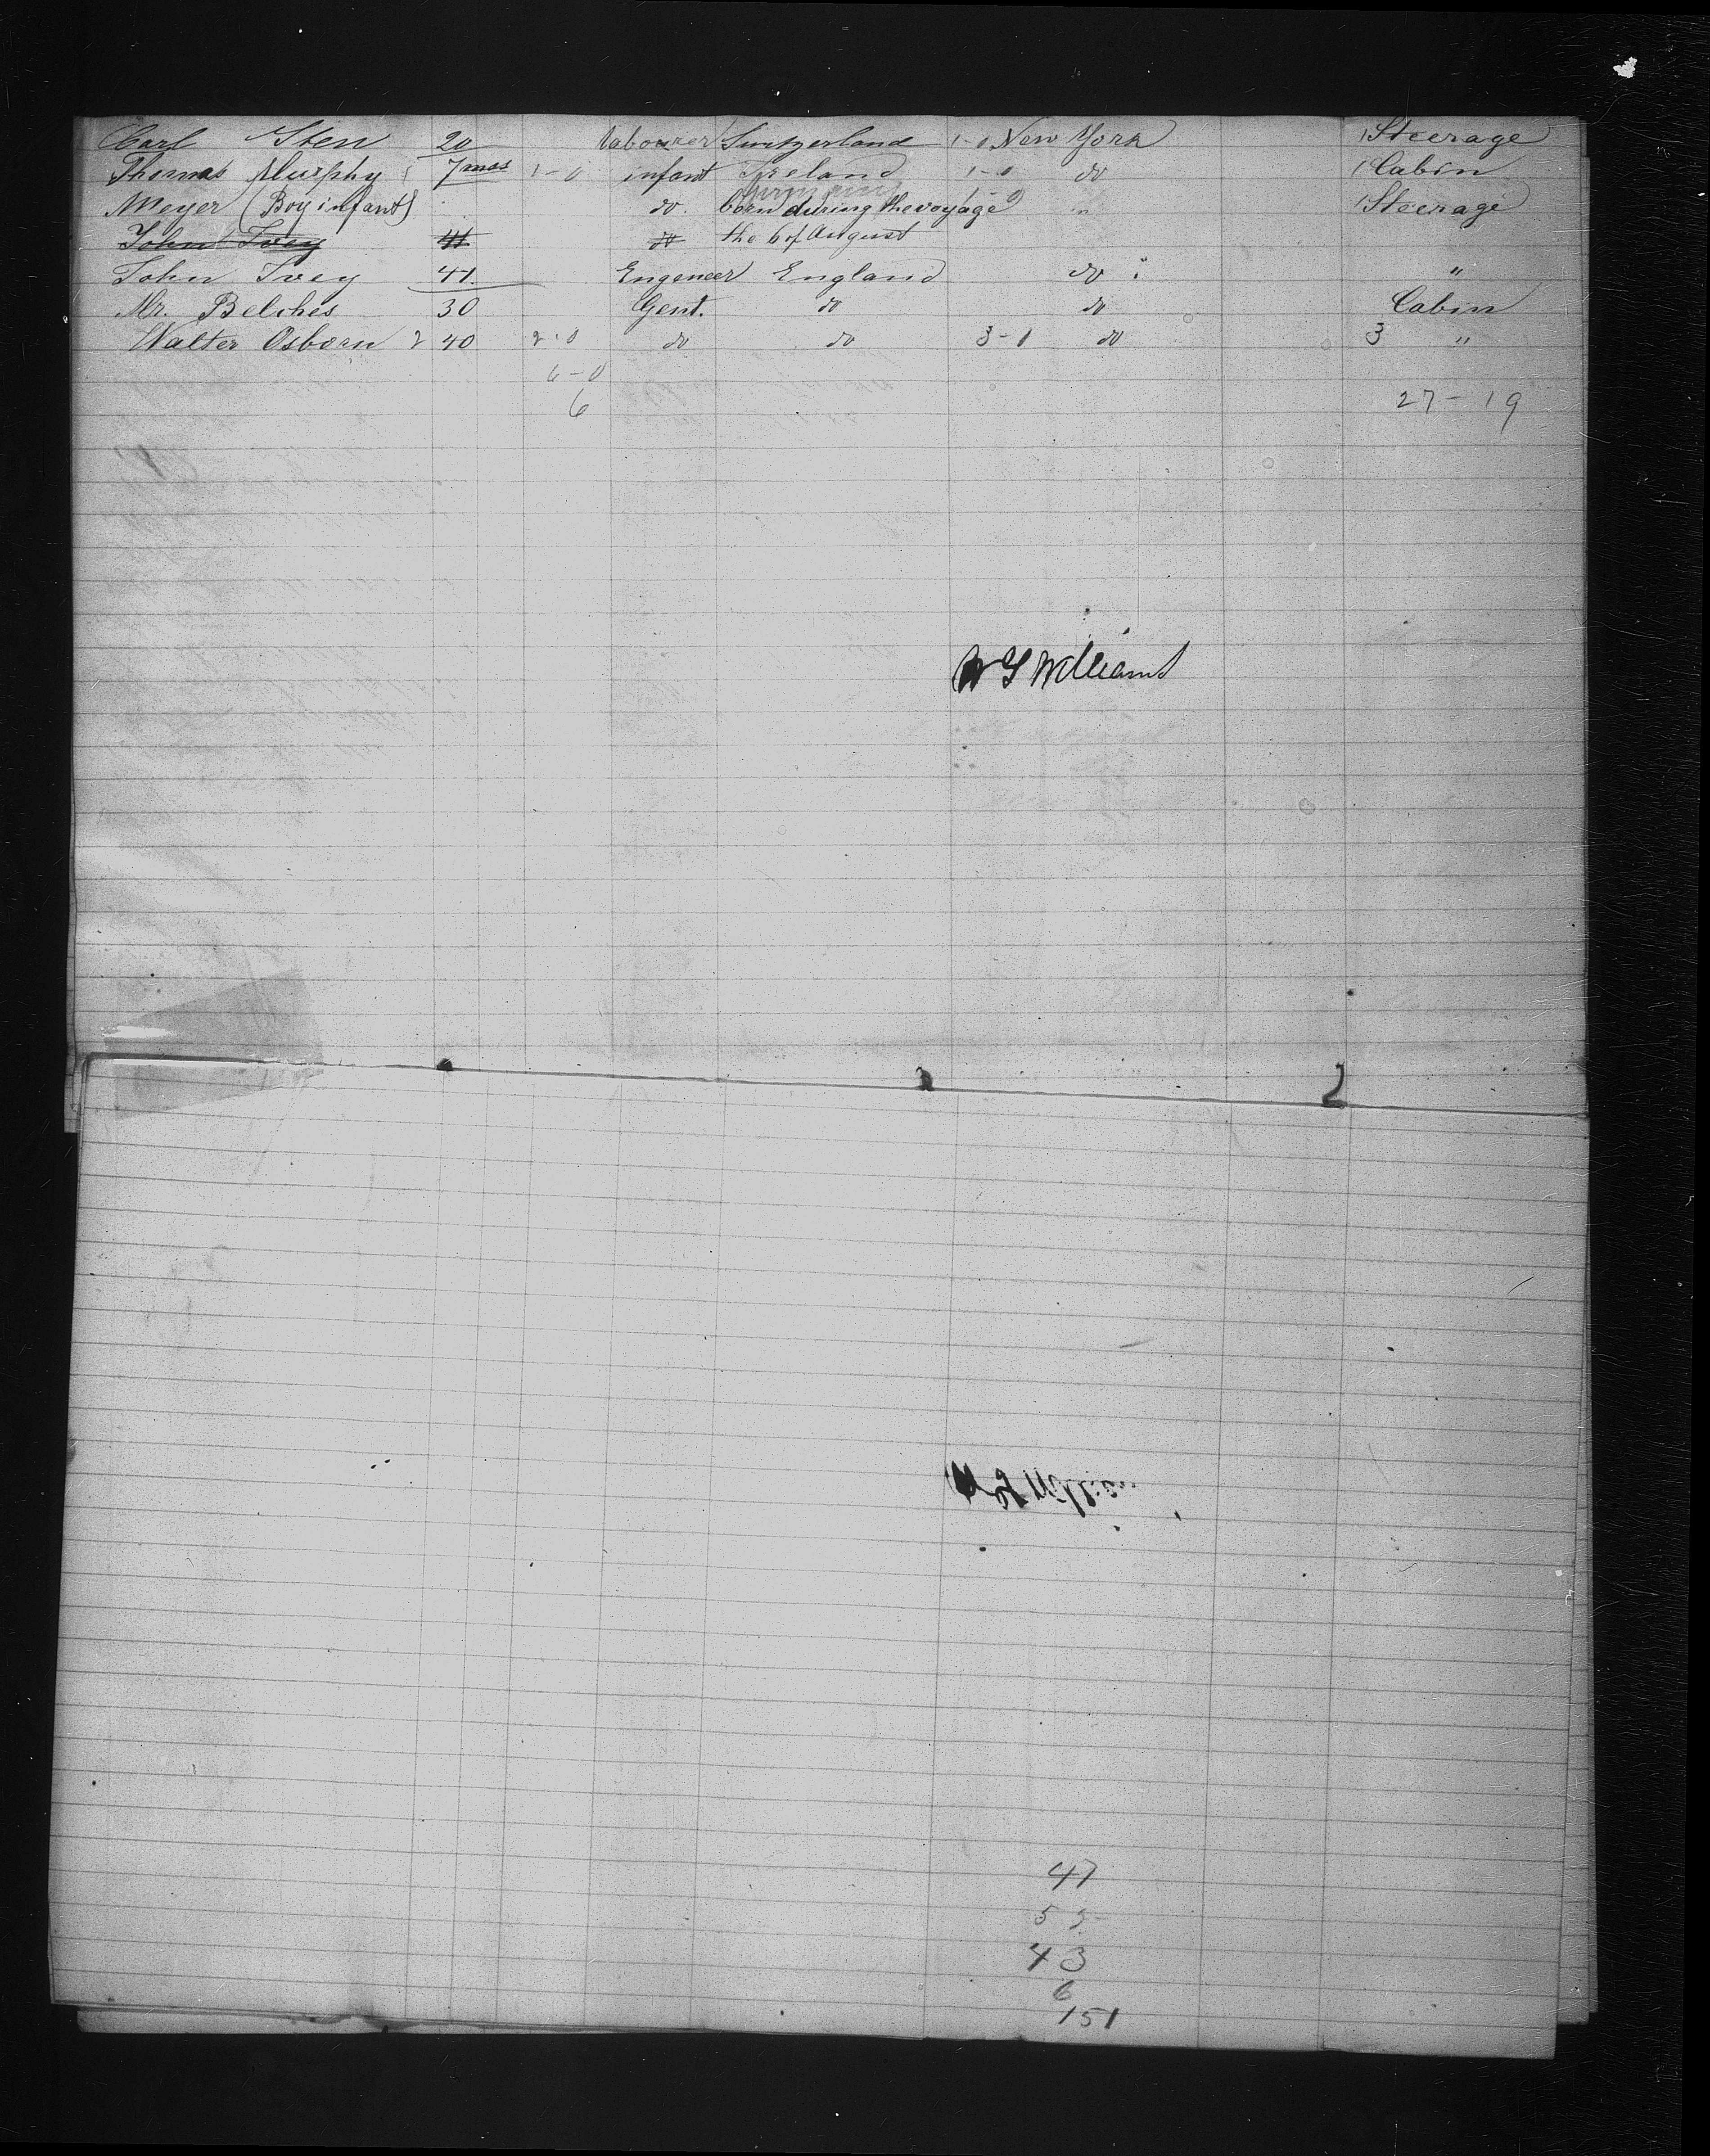 Carl Sten 20 labourer Switzerland 1-0 New York 1 Steerage
Thomas Murphy 7 mos 1-0 infant Ireland 1-0 do 1 Cabin
Germany
Meyer (Boy infant) do. born during the voyage 1-0 " 1 Steerage
John Ivey 41 do the 6 of August
John Ivey 41. Engeneer England do "
Mr. Belches 30 Gent. do do Cabin
Walter Osborn 2 40 2-0 do do 3-0 do 3 "
6-0
6 27-19
W G Williams
47
55
43
6
151